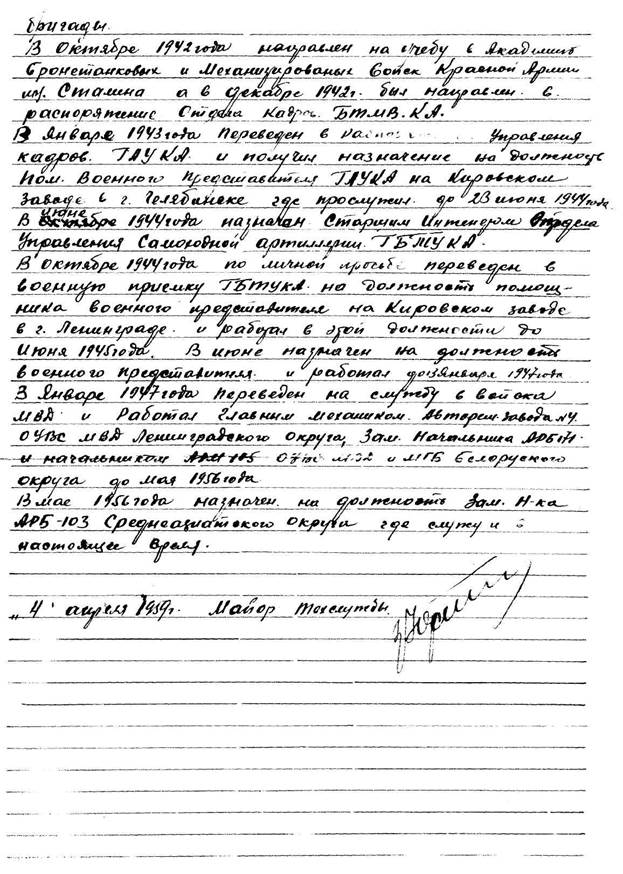 бригады.
В Октябре 1942 года направлен на учебу в Академию
бронетанковых и Механизированых войск Красной Армии
им. Сталина а в декабре 1942г. был направлен в
распоряжение Отдела Кадров БТМВ. КА.
В Январе 1943 года переведен в Управления
кадров. ГАУКА и получил назначение на должность
Пом. Военного Представителя ГАУКА на Кировском
заводе в г. Челябинске где прослужил до 23 июня 1944 года.
В июне 1944 года назначен Старшим Инженером Отдела
Управления Самоходной артиллерии. ГБТУКА.
В Октябре 1944 года по личной просьбе переведен в
военную приемку ГБТУКА. на должность помощ-
ника военного представителя на Кировском заводе
в г. Ленинграде. и работал в этой должности до
Июня 1945 года. В июне назначен на должность
военного представителя. и работал до января 1947 года
В Январе 1947 года переведен на службу в войска
МВД и Работал главным механиком. Авторем. завода №4.
ОУВС МВД Ленинградского округа, Зам. Начальника
и начальником и МГБ Белоруского
округа до мая 1956 года
В мае 1956 года назначен на должность Зам. Н-ка
АРБ-103 Среднеазиатского Округа где служу и в
настоящее время.
"4" апреля 1959г. Майор техслужбы.